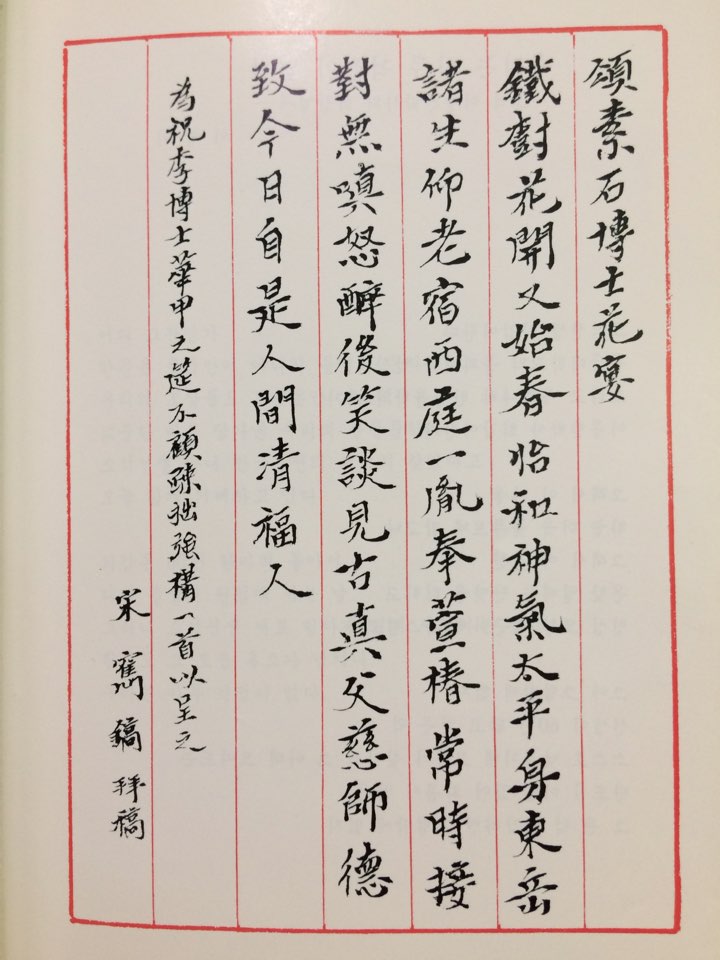 頌素石博士花宴
鐵樹花開又始春怡和神氣太平身東岳
諸生仰老宿西庭一胤奉萱椿常時接
對無嗔怒醉後笑談見古真父慈師德
致今日自是人間清福人
為祝李博士華甲之筵不顧踈拙強構一首以呈之
宋寯鎬拜稿